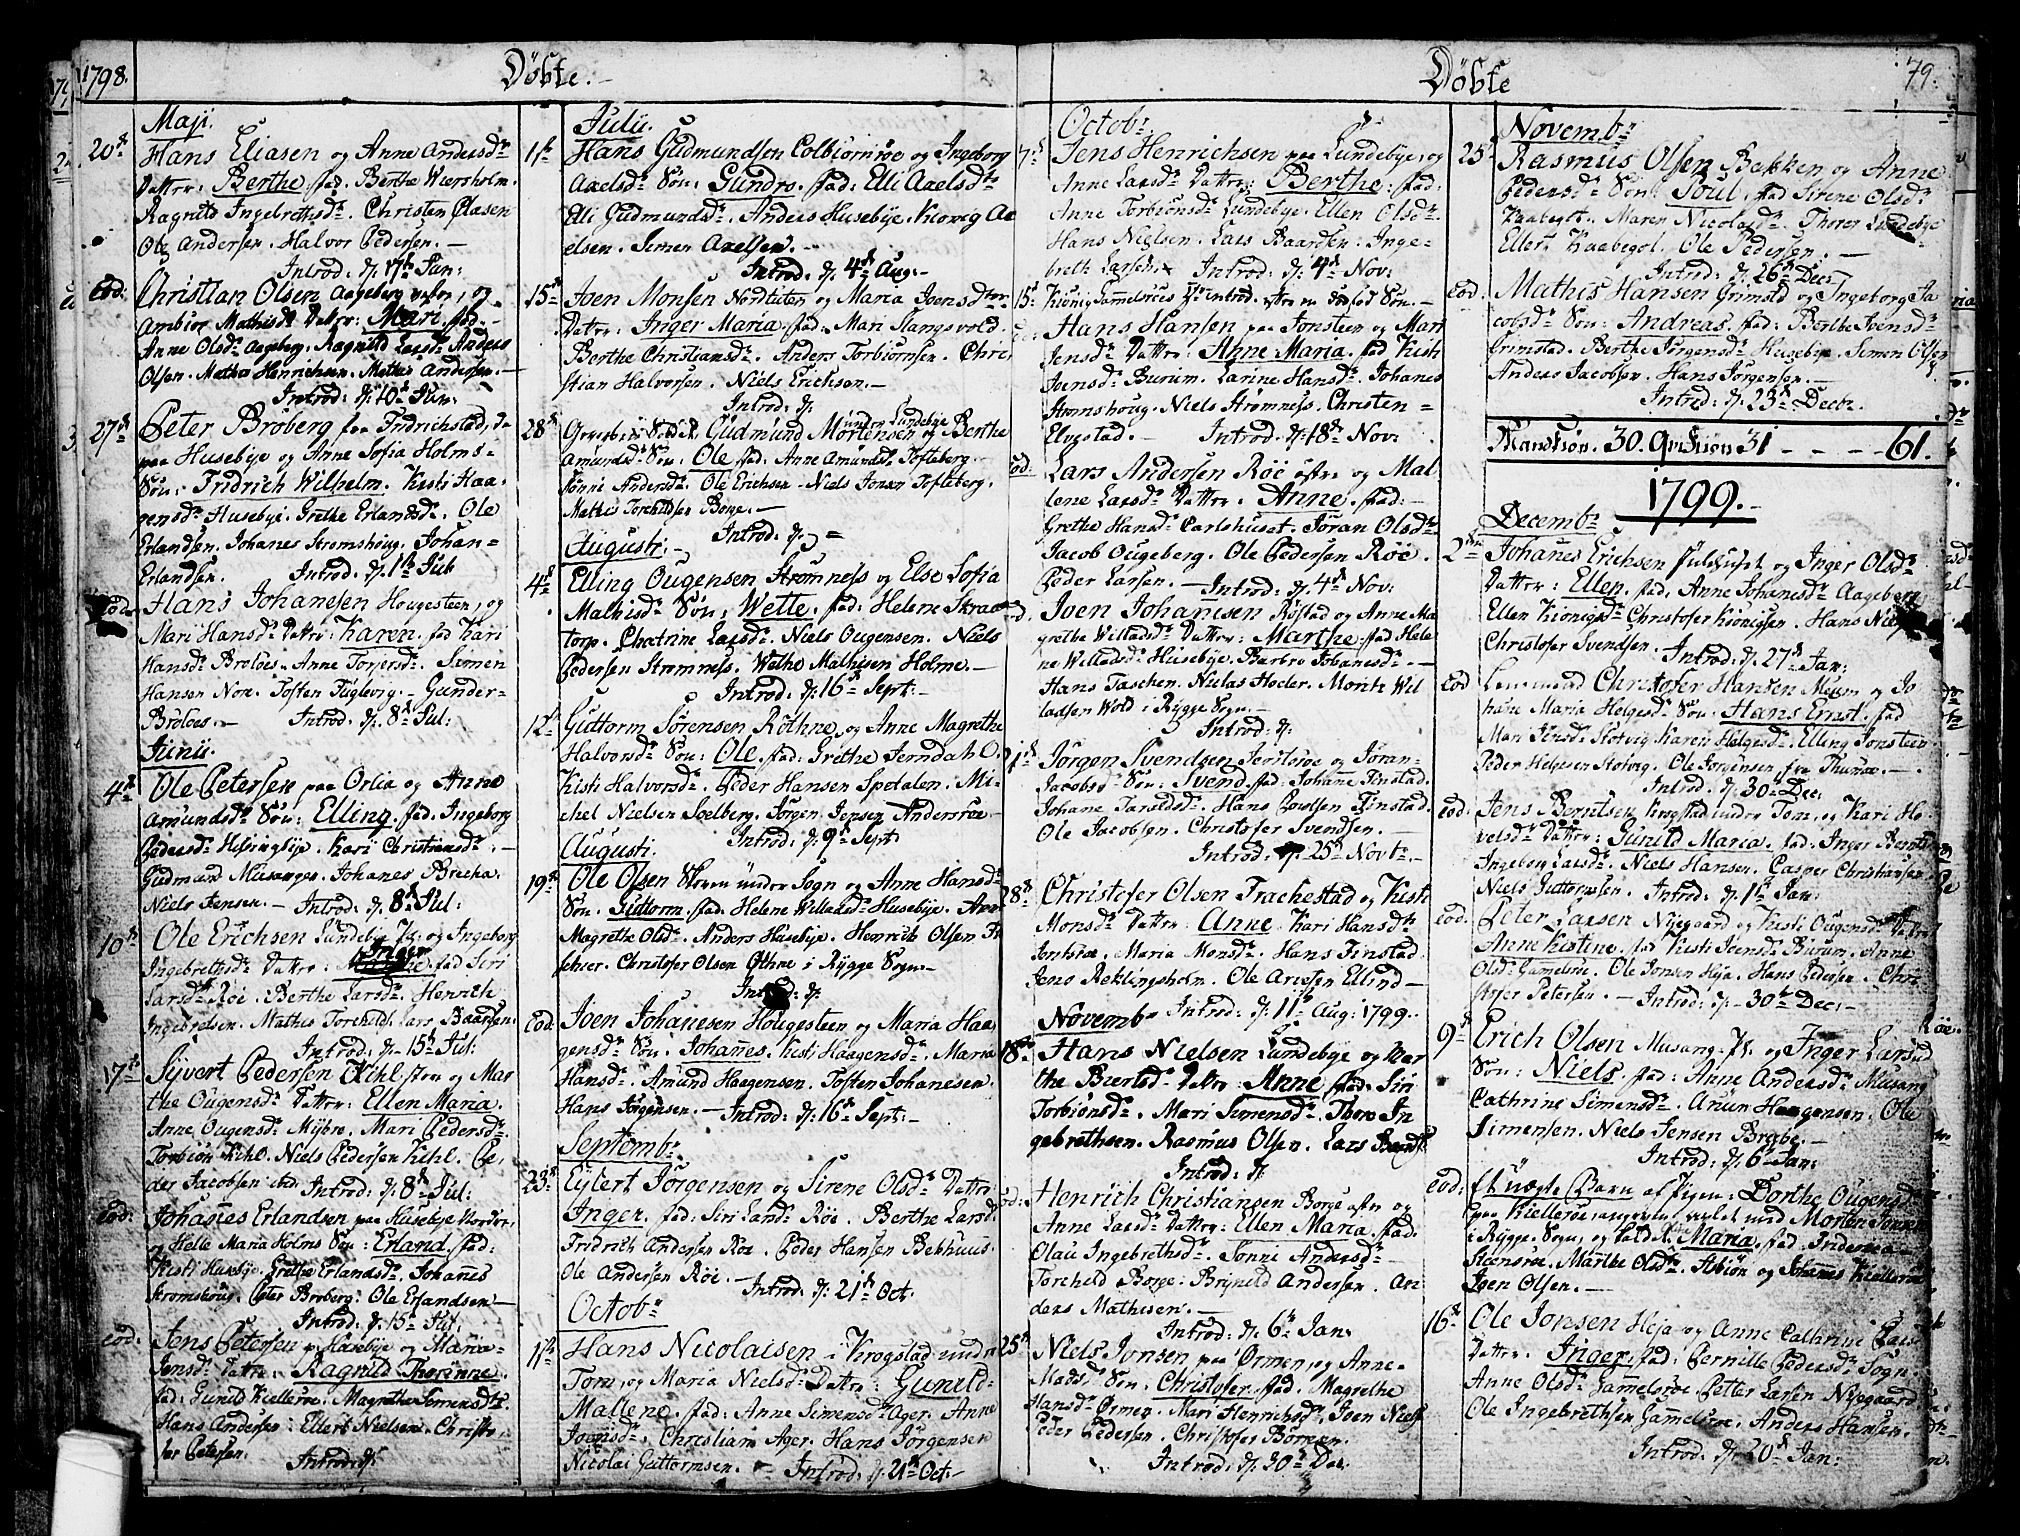 1798.
Döbte.
Maji.
20de Hans Eliasen og Anne Andersdr
Datter: Berthe. fad. Berthe Wiersholm.
Ragnild Ingebrethsdr. Christen Olasen
Ole Andersen. Halvor Pedersen. —
Introd: d. 17de Jun:
eod: Christian Olsen Aageberg og
Ambior Mathisdr Datter: Mari. fad. —
Anne Olsdr Aageberg. Ragnild Larsdr. Anders
Olsen. Mathis Henrichsen. Mathis Andersen. —
Introd: d. 10de Jun:
27de Peter Broberg fra Fridrichstad,
paa Husebye og Anne Sofia Holms.
Sön: Fridrich Wilhelm. Kisti Haa-
gensdr Husebye. Grethe Erlandsdr. Ole
Erlandsen. Johanes Stromshoug. Johan
Erlandsen. Introd: d. 1te Jul:
eod: Hans Johanesen Hougesteen, og
Mari Hansdr Datter: Karen. fad Kari
Hansdr Broloes. Anne Torgersdr. Simen
Hansen Nore. Tosten Fuglevig. Gunder
Broloes. — Introd: d. 8de Jul:
Junii.
4de Ole Petersen paa Orlia og Anne
Amundsdr Sön: Elling. fad. Ingeborg
Pedersdr Husebye. Kari Christiansdr. —
Gudmund Musanger. Johanes Brecha.
Niels Jensen. — Introd: d. 8de Jul:
10de Ole Erichsen Lundebye og Ingeborg
Inger
Ingebrethsdr Datter: fad Siri
Larsdr Röe. Berthe Larsdr. Henrich
Ingebretsen. Mathis Torchilds. Lars Baardsen.
Introd: d. 15de Jul:
17de Syvert Pedersen Kihl og Mar
the Ougensdr Datter: Ellen Maria.
Anne Ougensdr Myhre. Mari Pedersdr.
Torbiön Kihl. Niels Pedersen Kihl. Pe,
der Jacobsen ibid. Introd: d. 8de Jul:
eod: Johanes Erlandsen paa Husebye Nordre,
og Helle Maria Holms Sön: Erland. fad:
Kisti Husebye. Grethe Erlandsdr. Johanes
Stromshoug. Peter Broberg. Ole Erlandsen —
Introd: d. 15de Jul:
eod: Jens Petersen p. Husebye og Maria
Jensdr Datter: Ragnild Thorinne.
fad: Gunild Kiellerøe. Magrethe Simensdr.
Hans Andersen. Ellert Nielsen. Christo-
fer Petersen. Introd: d.
Julii.
1te Hans Gudmundsen Colbiornröe og Ingeborg
Axelsdr Sön: Gundro. fad: Elli Axelsdr
Elli Gudmundsdr. Anders Husebye. Kiövig Ax
elsen. Simen Axelsen. —
Introd: d. 4de Aug: —
15de Joen Monsen Nordtuten og Maria Joensdr
Datter: Inger Maria. fad. Mari Slangsvold.
Berthe Christiansdr. Anders Torbiornsen. Chri
stian Halvorsen. Niels Erichsen. —
Introd: d.
28de Gudmund Mortensen under Lundebye og Berthe
Amundsdr Sön: Ole. fad. Anne Amundsdr Tofteberg.
Jönni Andersdr. Ole Erichsen. Niels Jonsen Tofteberg.
Mathis Torchildsen Borge. —
Introd: d.
Augusti. —
4de Elling Ougensen Stromness og Else Sofia
Mathisdr Sön: Wette. fad: Helene Skraa
torp. Chatrine Larsdr. Niels Ougensen. Niels
Pedersen Stromness. Wethe Mathisen Holme. —
Introd: d. 16de Sept: —
12te Guttorm Sörensen Röthne, og Anne Magrethe
Halvorsdr Sön: Ole. fad: Grethe Jerndahl.
Kisti Halvorsdr. Peder Hansen Spetalen. Mi-
chel Nielsen Soelberg. Jörgen Jensen Andersröe —
Introd: d. 9de Sept.
Augusti.
19de Ole Olsen og Anne Hansdr
Sön. Guttorm. fad. Helene Willadsdr Husebye.
Magrethe Olsdr. Anders Husebye. Henrich Olsen
Christofer Olsen Othne i Rygge Sogn. —
Introd: d.
eod: Joen Johanesen Hougesteen og Maria Haa-
gensdr Sön: Johanes. Kisti Haagensdr. Maria
Hansdr. Amund Haagensen. Tosten Johanesen.
Hans Jörgensen. — Introd: d. 16de Sept: —
Septembr.
23de Eylert Jörgensen og Sirene Olsdr Datter:
Inger. fad: Siri Larsdr Röe. Berthe Larsdr.
Fridrich Andersen Röe. Peder Hansen Bekhuus.
Ole Andersen Röe. — Introd: d. 21de Oct.
Octobr
1te Hans Nicolaisen i Krogstad under
Tom, og Maria Nielsdr Datter: Gunild
Mallene. fad: Anne Simensdr Ager. Anne
Joensdr. Christian Ager. Hans Jörgensen
Nicolai Guttormsen. — Introd: d. 21de Oct. —
Döbte
79.
Octobr
7de Jens Henrichsen paa Lundebye, og
Anne Larsdr Datter: Berthe: fad:
Anne Torbiönsdr Lundebye. Ellen Olsdr.
Hans Nielsen. Lars Baardsen: Inge-
breth Larsen. Introd: d. 4de Nov:
15de
eod: Hans Hansen paa Jonsteen og Mari
Jensdr Datter: Anne Maria. fad Kisti
Joensdr Burum. Larine Hansdr. Johanes
Stromshoug. Niels Strømness. Christen
Elvestad. — Introd: d. 18de Nov:
eod: Lars Andersen Röe og Mal-
lene Larsdr Datter: Anne. fad: —
Grethe Hansdr Carlshuset. Joran Olsdr
Jacob Ougeberg. Ole Pedersen Röe.
Peder Larsen. — Introd: d. 4de Nov:
eod. Joen Johanesen Röstad og Anne Ma
grethe Willadsdr Datter: Marthe. fad Hele
ne Willadsdr Husebye. Barbro Johanesdr. —
Hans Taschen. Niclas Hocler. Morits Wil
ladsen Wold i Rygge Sogn. —
Introd: d.
21de Jörgen Svendsen og Joran
Jacobsdr Sön: Svend. fad: Johane Finstad.
Johane Taraldsdr. Hans Povelsen Finstad.
Ole Jacobsen. Christofer Svendsen. —
Introd: d. 25de Novbr. —
28de Christofer Olsen Trachestad og Kisti
Monsdr Datter: Anne. Kari Hansdr
Jonsröe. Maria Monsdr. Hans Finstad.
Jens Reklingsholm. Ole Arvesen Ellind —
Novembr Introd: d. 11te Aug: 1799.
18de Hans Nielsen Lundebye og Mar
the Biertsdr Datter: Anne. fad: Siri
Torbiönsdr. Mari Simensdr. Thore In
gebrethsen. Rasmus Olsen. Lars
Introd: d.
eod: Henrich Christiansen Borge og
Anne Larsdr Datter: Ellen Maria. fad.
Olau Ingebrethsdr. Jonni Andersdr —
Torchild Borge: Brynild Andersen. An
ders Mathisen. —
Introd: d. 6te Jan:
25de Niels Jonsen paa Ørmen, og Anne
Madsdr Sön: Christofer. fad. Magrethe
Hansdr Ormen. Mari Henrichsdr. Joen Niels
Peder Pedersen. Christofer Börresen.
Introd: d. 30de Dec:
Novembr
25de Rasmus Olsen Bakken og Anne
Pedersdr Sön: Poul. fad Sirene Olsdr
Kaabegot. Maren Nicolaidr. Thorer Lundebye
Ellert Kaabegot. Ole Pedersen: —
Introd: d. 26de Dec:
eod. Mathis Hansen Grimstad og Ingeborg Ja
cobsdr Sön: Andreas. fad: Berthe Joensdr
Grimstad. Berthe Jörgensdr Husebye. Simen Olsen
Anders Jacobsen. Hans Jörgensen. —
Introd: d. 23de Decbr.
Mandkiön. 30. Qvistiön 31 - - - - 61.
1799.
Decembr
2den Johanes Erichsen og Inger Olsdr
Datter: Ellen. fad. Anne Johanesdr Aageberg
Ellen Kiönigsdr Christofer Kiönigsen. Hans
Christofer Svendsen. Introd: d. 27de Jan:
eod Christofer Hansen Moum og Jo
hane Maria Helgesdr Sön: Hans Ernst. fad
Mari Jensdr Slotvig. Karen Helgesdr. Elling Jonsteen.
Peder Helgesen Stotvig. Ole Jorgensen fra Thunøe. —
Introd: d. 30te Dec:
eod: Jens Berntsen Krogstad under Tom, og Kari Ho
velsdr Datter: Gunild Maria. fad: Inger
Ingeborg Larsdr. Niels Hansen. Casper Christiansen
Niels Guttormsen. Introd: d. 1te Jan:
eod. Peter Larsen Nyegaard og Kisti Ougensdr Datter
Anne Kistine. fad Kisti Joensdr Burum. Anne
Olsdr Gamelröe. Ole Jonsen Heja. Hans Pedersen. Chri
stofer Petersen. — Introd: d. 30te Dec: —
9de Erich Olsen Musang og Inger Larsdr
Sön: Niels. fad: Anne Andersdr Musang
Cathrine Simensdr. Arun Haagensen. Ole
Simensen. Niels Jensen —
Introd: d. 6te Jan:
eod: Et uægte Barn af Pigen: Dorthe Ougensdr
paa Kiellerøe, med Morten
i Rygge Sogn, og kaldet Maria. fad:
Steensröe. Marthe Olsdr. og Johanes Kiellerøe
Joen Olsen. —
16de Ole Jonsen Heja og Anne Cathrine
Datter: Inger. fad: Pernille Pedersdr Sogn.
Anne Olsdr Gammelsröe. Petter Larsen Nyegaard
Ole Ingebrethsen Gammelsröe. Anders Hansen.
Introd: d. 20de Jan: